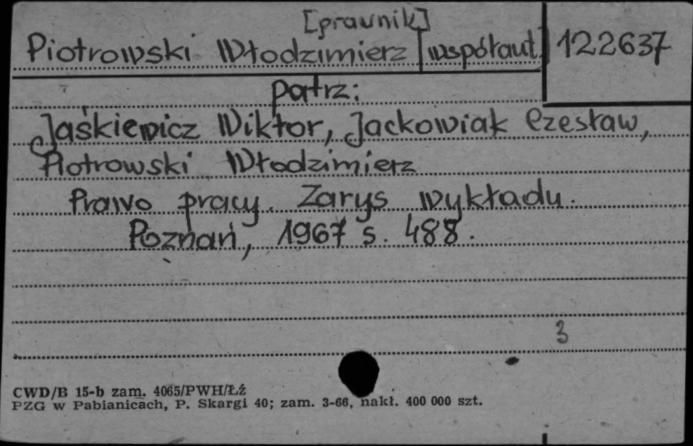 [prawnik]
Piotrowski Włodzimierz [współaut.] 122637
patrz:
Jaśkiewicz Wiktor, Jackowiak Czesław,
Piotrowski Włodzimierz
Prawo pracy. Zarys wykładu.
Poznań, 1967 s. 488.
3
CWD/B 15-b zam. 4065/PWH/Łź
PZG w Pabianicach, P. Skargi 40; zam. 3-66, nakł. 400 000 szt.